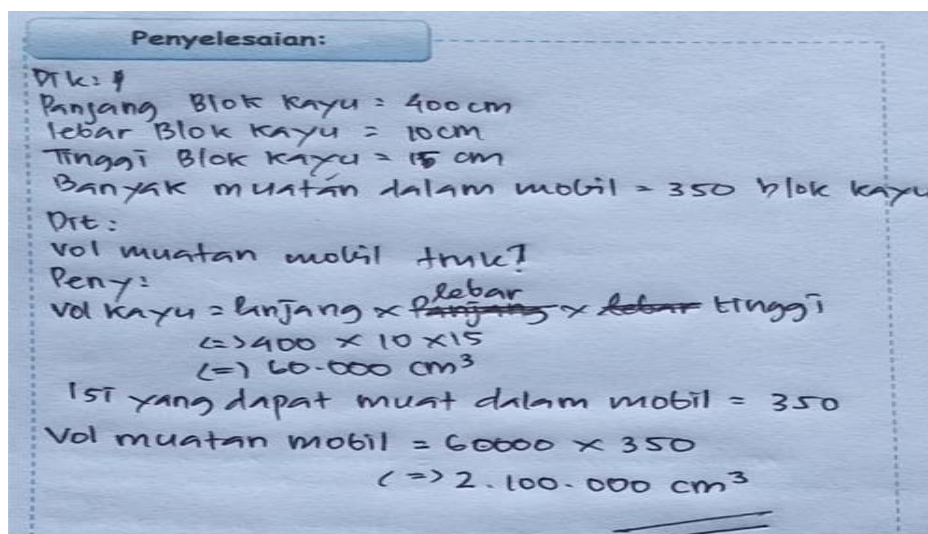 Penyelesaian:
Dik:
Panjang Blok kayu = 400 cm
lebar Blok kayu = 10 cm
Tinggi Blok kayu = 15 cm
Banyak muatan dalam mobil = 350 blok kayu
Dit:
Vol muatan mobil truk?
Peny:
Vol kayu = Panjang x lebar x tinggi
<=> 400 x 10 x 15
<=> 60.000 cm³
Isi yang dapat muat dalam mobil = 350
Vol muatan mobil = 60000 x 350
<=> 2.100.000 cm³